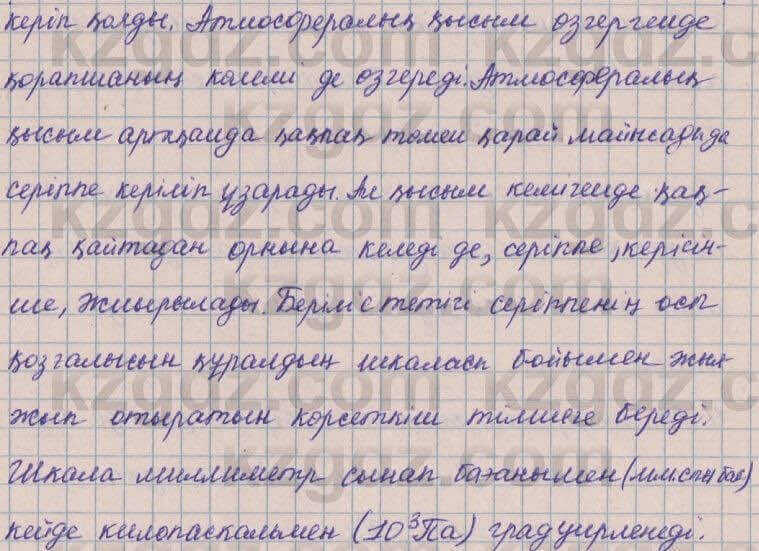 керіп қалды. Атмосфералық қысым өзгергенде
қорапшаның көлемі де өзгереді. Атмосфералық
қысым артқанда қақпақ төмен қарай майысады да
серіппе керіліп ұзарады. Ал қысым кемігенде қақ-
пақ қайтадан орнына келеді де, серіппе, керісін-
ше, жиырылады. Беріліс тетігі серіппенің осы
қозғалысын құралдың шкаласы бойымен жыл-
жып отыратын көрсеткіш тілшеге береді.
Шкала миллиметр сынап бағанымен (мм.сын бағ)
кейде килопаскальмен (10³Па) градуирленеді.
kzgdz.com